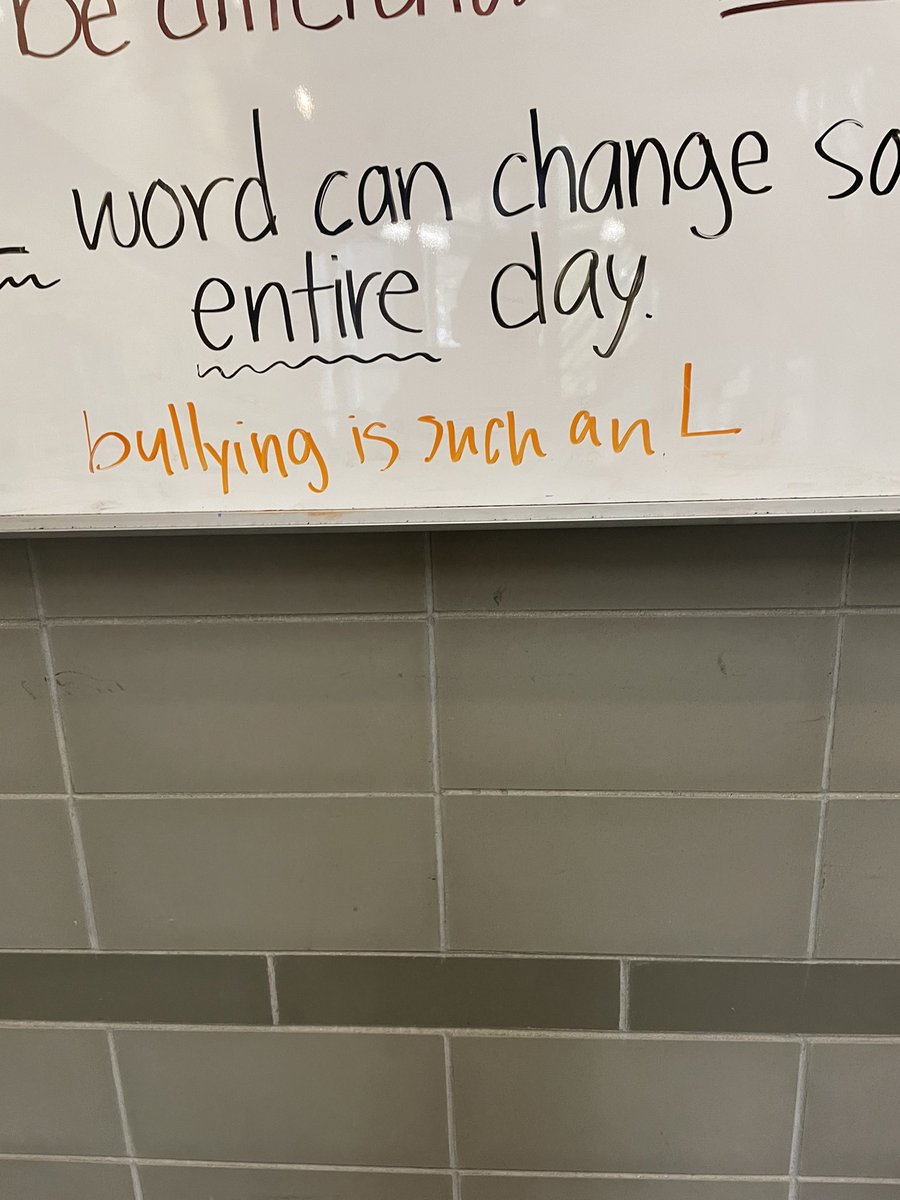 be different.
word can change so
entire day.
bullying is such an L